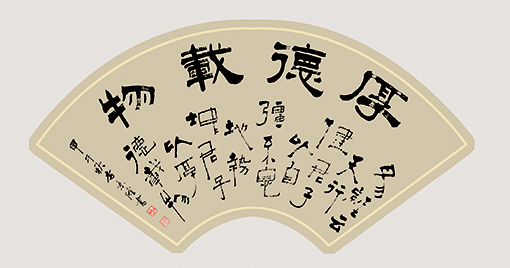 厚德載物
易經云
天行
健君子
以自
彊不息
地勢
坤君子
以厚
德載物
甲午秋